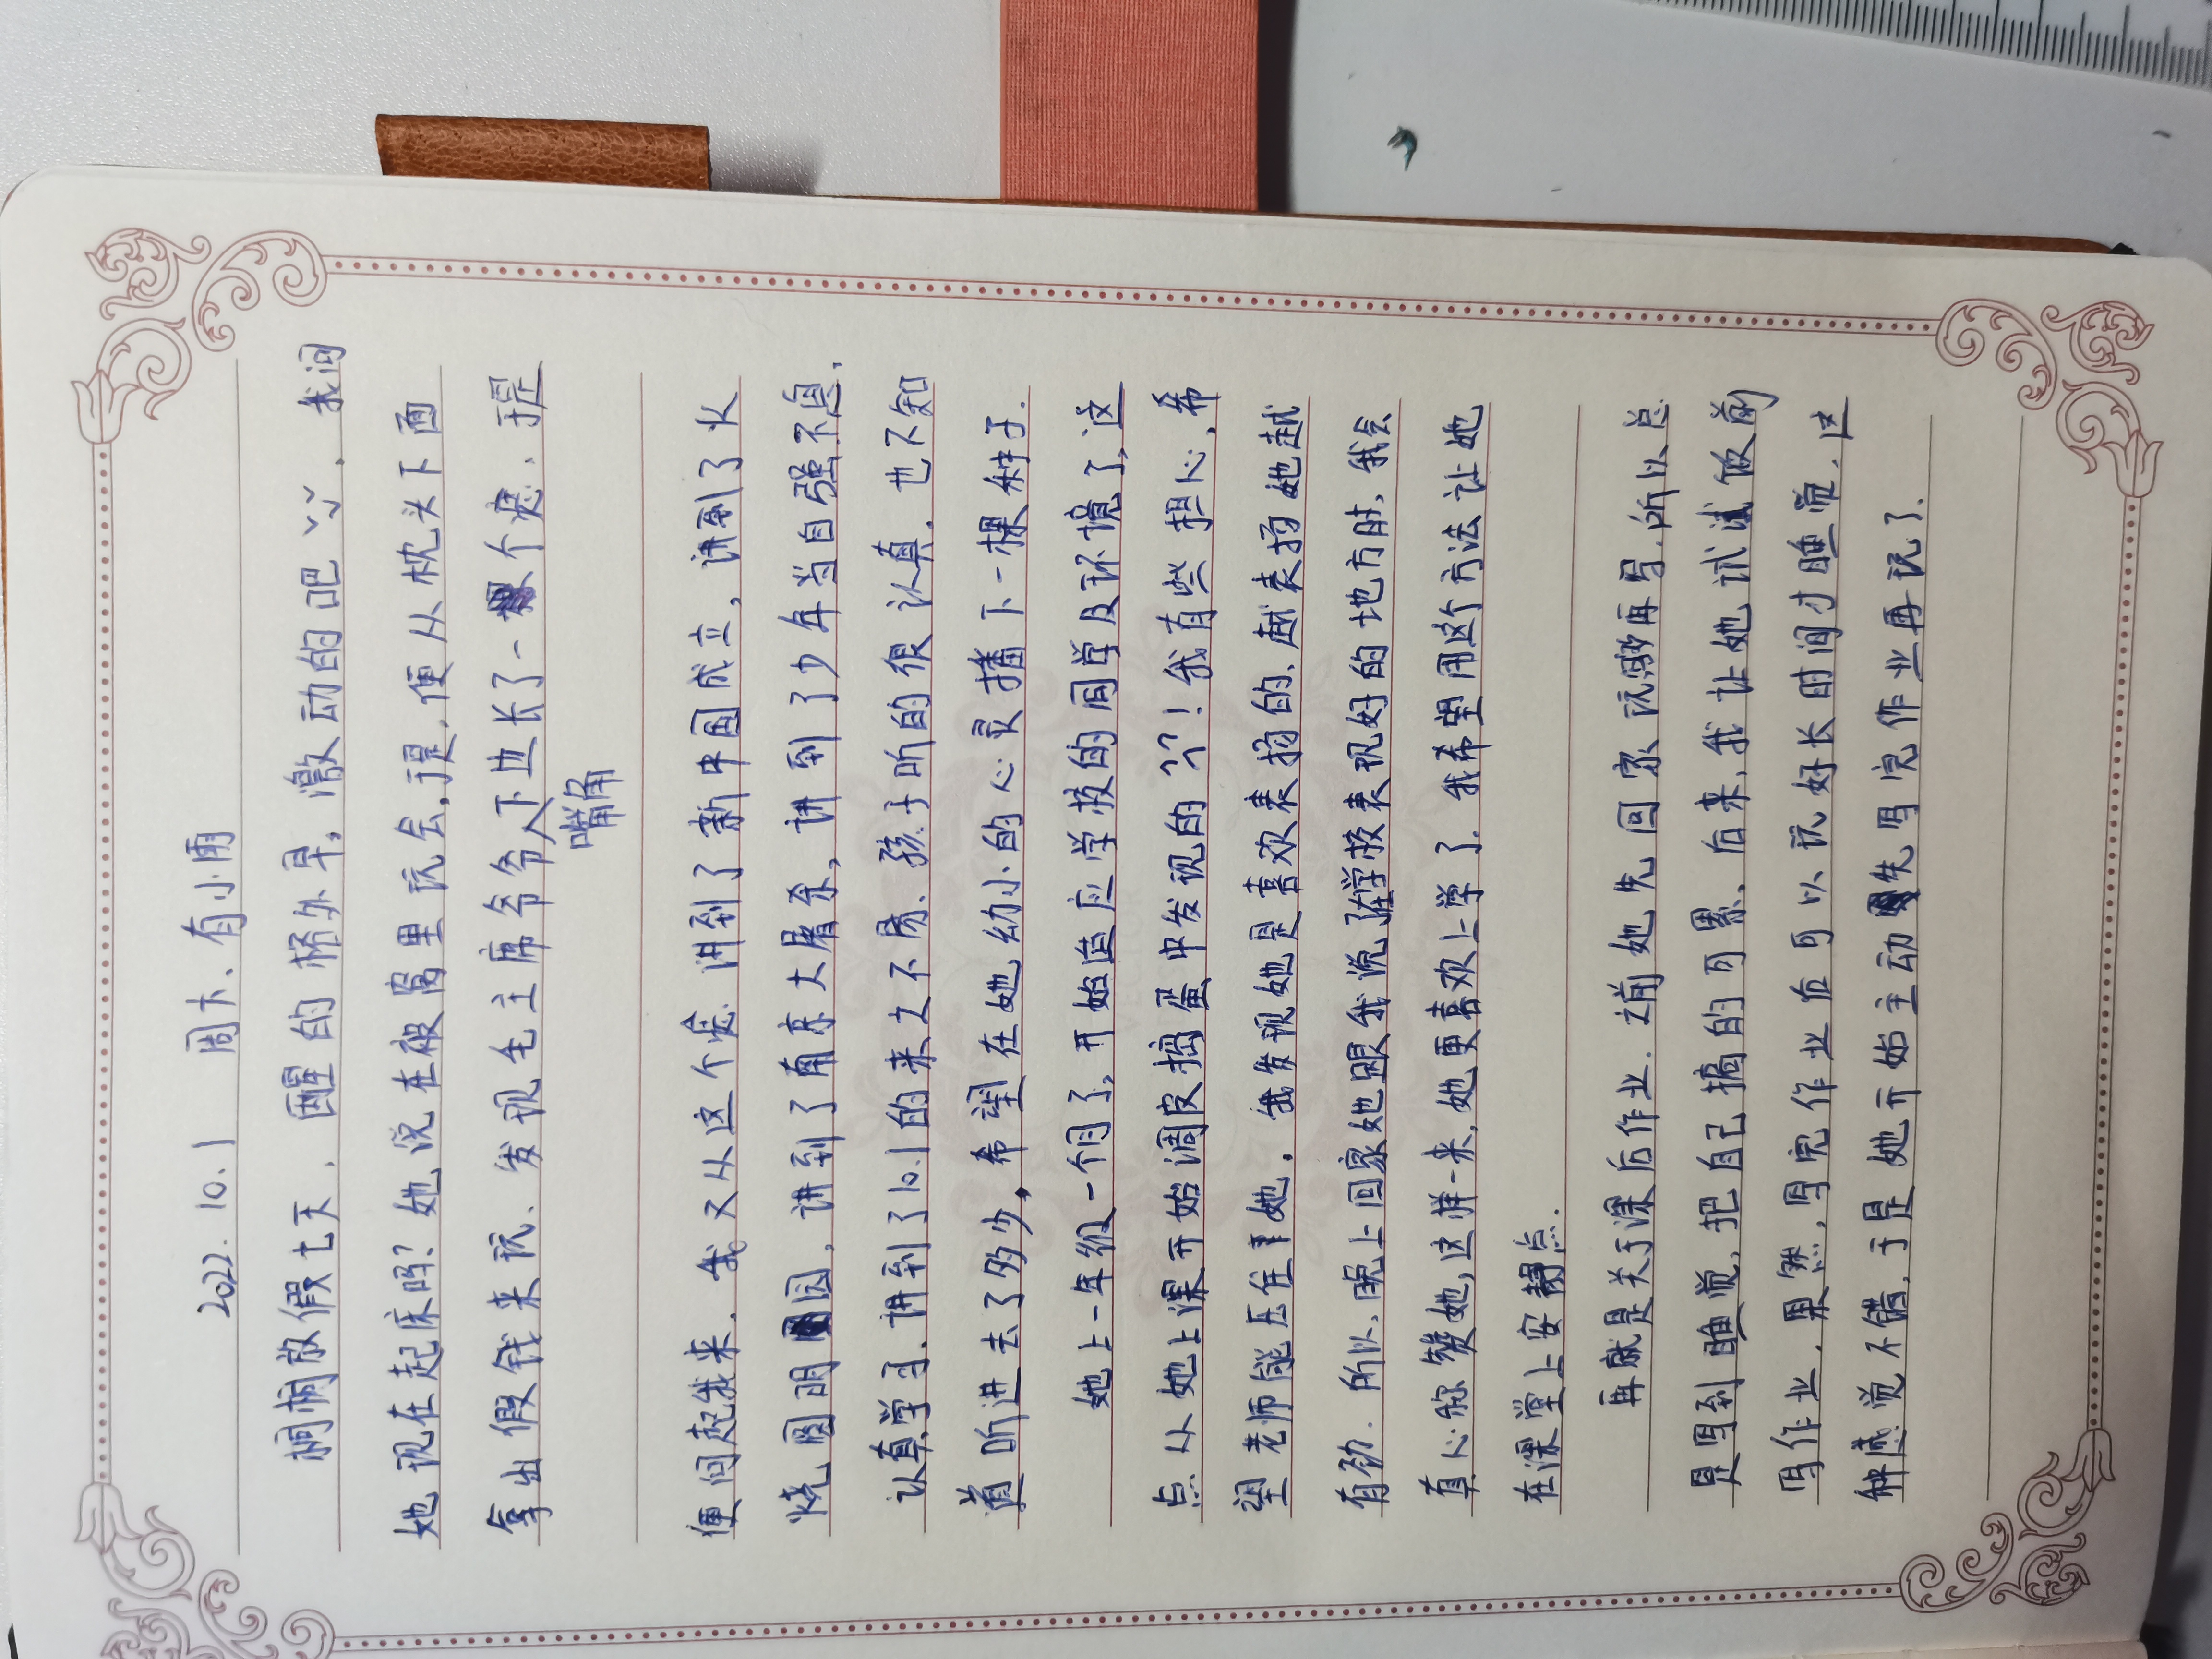 2022.10.1 周六、有小雨
桐桐放假七天，醒的格外早，激动的吧、我问
她现在起床吗？她说在被窝里玩会，于是，便从枕头下面
拿出假钱来玩、发现毛主席爷爷嘴角下边长了一个痣、于是
便问起我来，我又从这个痣讲到了新中国成立，讲到了火
烧圆明园，讲到了南京大屠杀，讲到了少年当自强不息，
认真学习，讲到了10.1的来之不易、孩子听的很认真，也不知
道听进去了多少，希望在她幼小的心灵播下一棵种子.
她上一年级一个月了，开始适应学校的同学及环境了，这
点从她上课开始调皮捣蛋中发现的！我有些担心，希
望老师能压住她，我发现她是喜欢表扬的，越表扬她越
有劲.所以，晚上回家她跟我说了在学校表现好的地方时，我会
真心称赞她，这样一来，她更喜欢上学了.我希望用这个方法让她
在课堂上安静点.
再就是关于课后作业.之前她先回家玩够再写，所以总
是写到睡觉，把自己搞的可累、后来，我让她试试饭前
写作业，果然，写完作业后可以玩好长时间才睡觉，这
解感觉不错，于是她开始主动先写完作业再玩了.